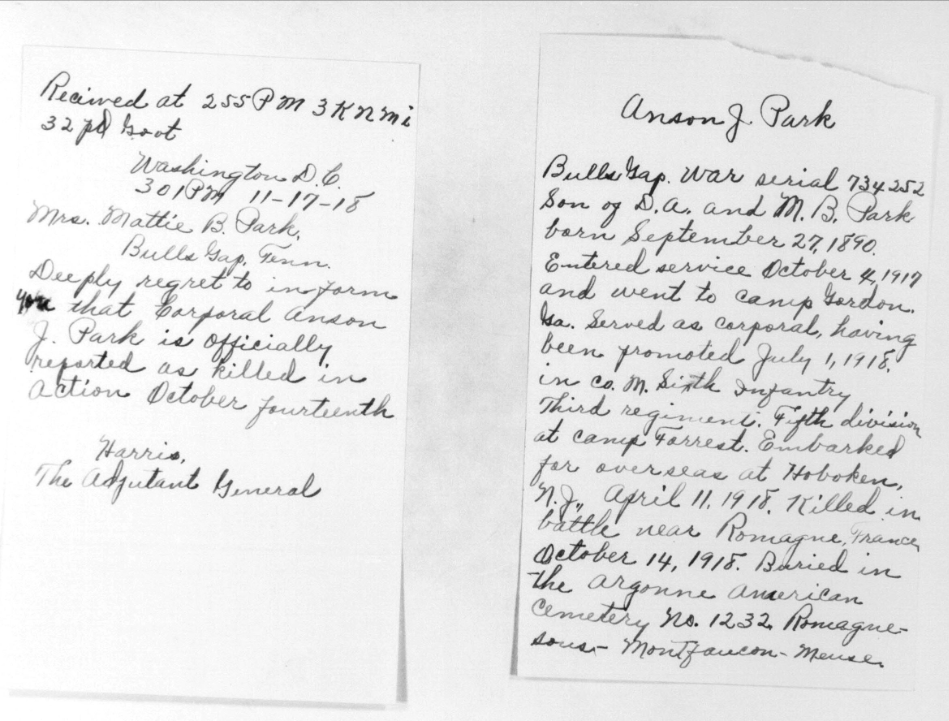 Recieved at 255PM 3KNMi
32 pd Govt
Washington D.C.
301PM 11-17-18
Mrs. Mattie B. Park,
Bulls Gap, Tenn.
Deeply regret to inform
you that Corporal Anson
J. Park is officially
reported as killed in
action October fourteenth
Harris,
The Adjutant General
Anson J. Park
Bulls Gap. War serial 734252
Son of D.A. and M. B. Park
born September 27, 1890.
Entered service October 4, 1917
and went to camp Gordon.
Ga. Served as corporal, having
been promoted July 1, 1918.
in co. M. Sixth Infantry
Third regiment. Fifth division
at camp Forrest. Embarked
for overseas at Hoboken,
N.J., April 11, 1918. Killed in
battle near Romagne, France,
October 14, 1918. Buried in
the Argonne American
Cemetery No. 1232. Romagne-
sous- Montfaucon- Meuse.